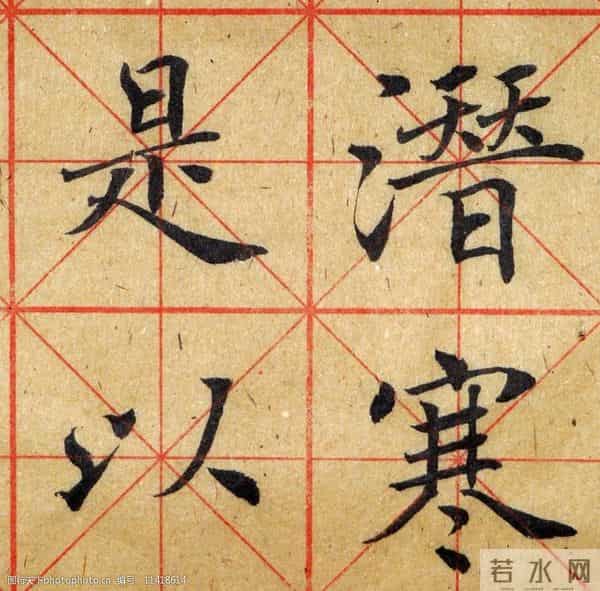 潛寒
是以
图行天下photophoto.cn 编号:11418614
若水网